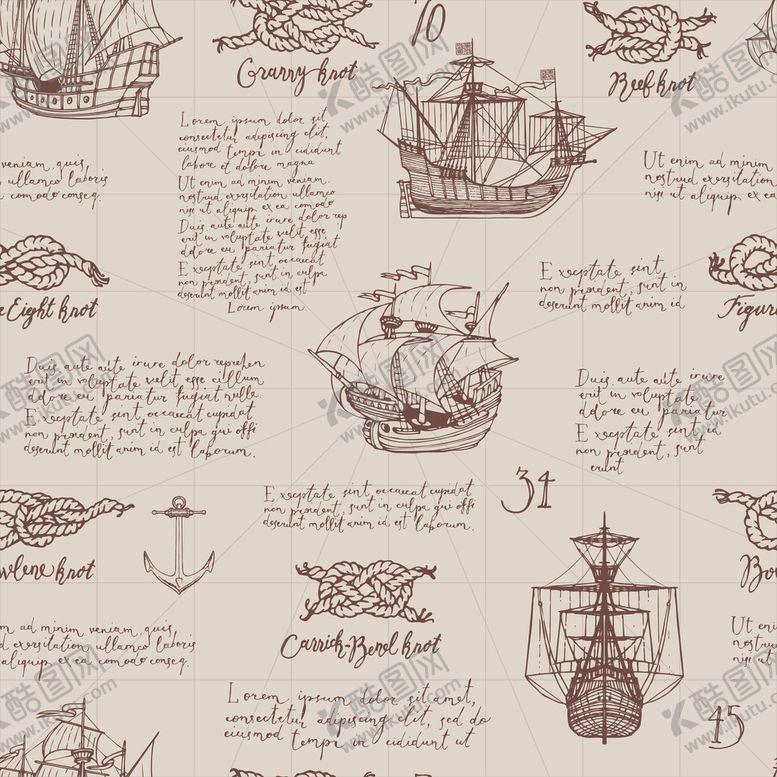 10
Granny knot
Reef knot
Lorem ipsum dolor sit
consectetur adipiscing elit,
eiusmod tempr in cididunt
labore et dolore magna
Ut enim ad minim veniam.
nostrud exersitation ullamco
nisi ut aliquip ex ea comodo
Duis aute aute irure dolor rep
erit in voluptate velit esse
dolore eu pariatur fugiat
Exceptate sint occaecat
non proident, sunt in culpa
deserunt mollit anim id est
Lorem ipsum
veniam, quis,
ullamco laboris
comodo conseq.
Ut enim ad minim
nostrud exersitation
nisi ut aliquip
Eight knot
Exceptate sint
non proident, sunt in
deserunt mollit anim id
Figur
Duis aute aute irure dolor reprehen
erit in voluptate velit esse cillum
dolore eu pariatur fugiat nulle.
Exceptate sint occaecat cupidat
non proident, sunt in culpa qui offi
deserunt mollit anim id est laborum.
Duis aute aute irure
erit in voluptate
dolore eu pariatur
Exceptate sint
non proident, sunt
deserunt mollit anim
erunt
Excoptate sint occaecat cupidatat
non proident, sunt in culpa qui offi
deserunt mollit anim id est laborum.
34
wlene knot
Bo
Carrick-Bend knot
m ad minim veniam, quis,
d exersitation ullamco laboris
aliquip ex ea comodo conseq.
Ut enim
nostrud
nisi ut
Lorem ipsum dolor sit amet,
consectetur adipiscing elit, sed
tempr in cididunt ut
45
酷图网
www.ikutu.com